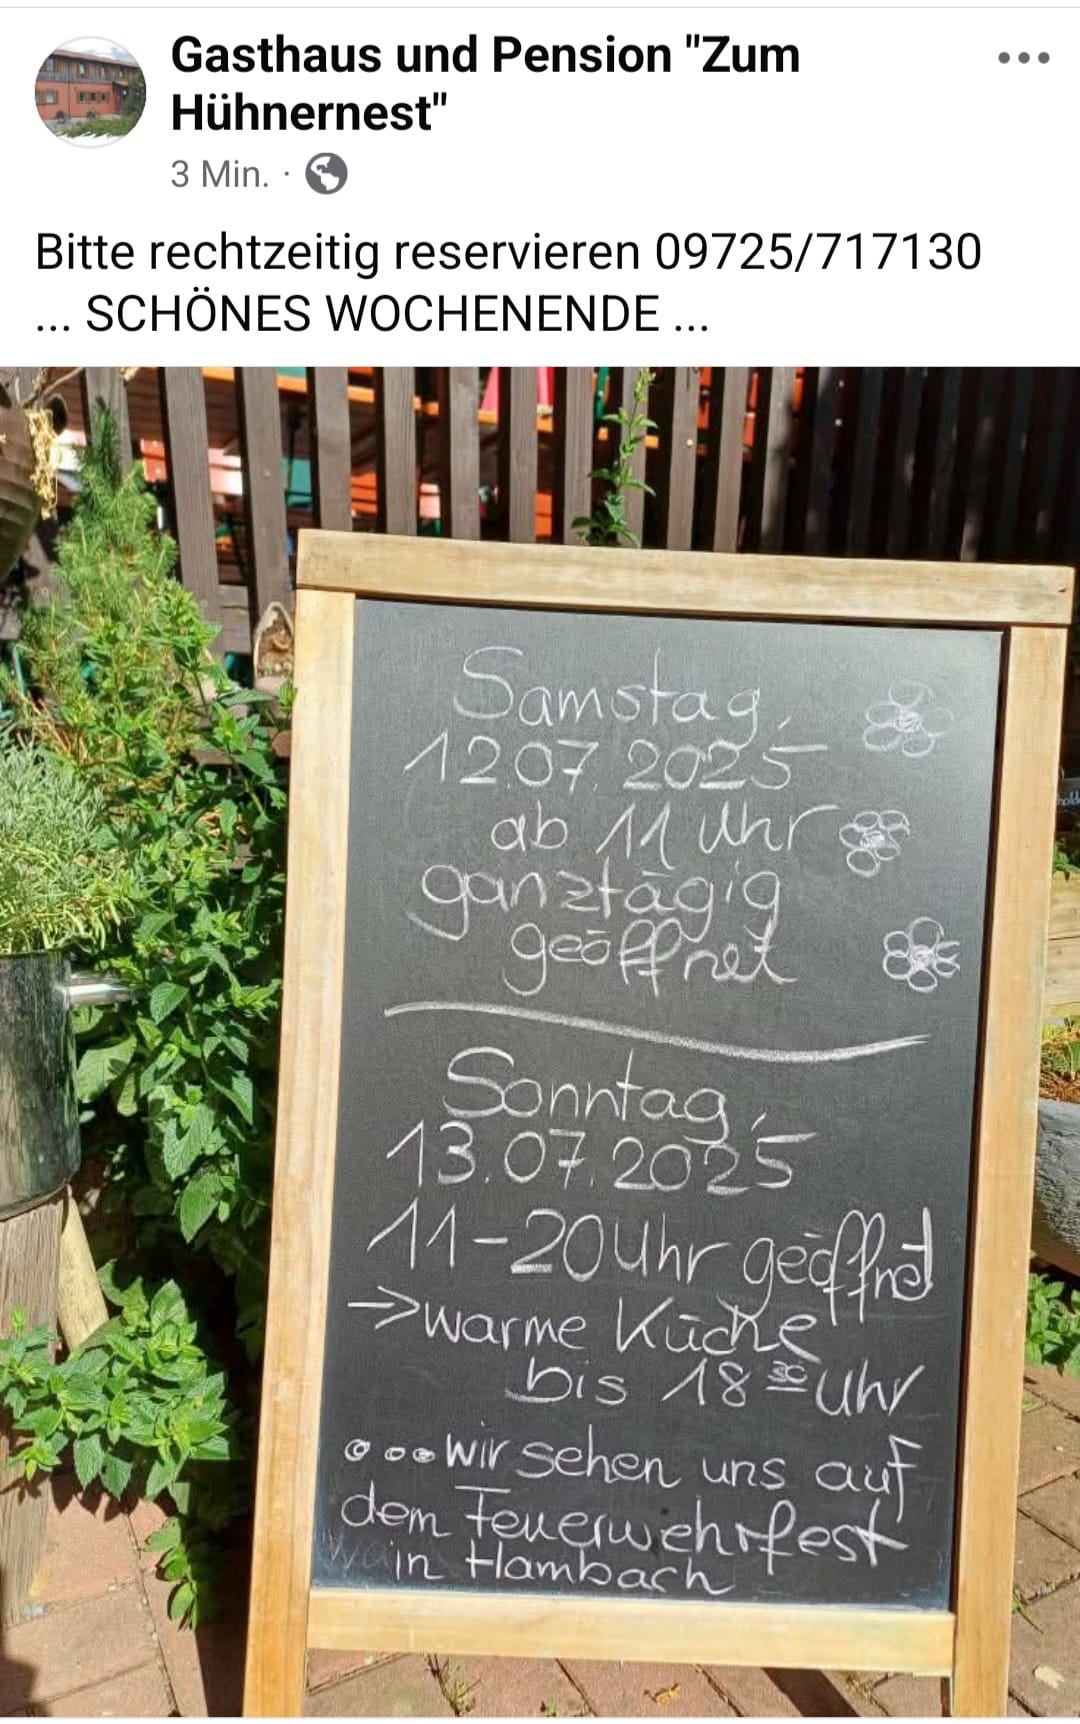 Gasthaus und Pension "Zum
Hühnernest"
3 Min. ·
Bitte rechtzeitig reservieren 09725/717130
... SCHÖNES WOCHENENDE ...
Samstag,
12.07.2025
ab 11 Uhr
ganztägig
geöffnet
Sonntag,
13.07.2025
11-20 Uhr geöffnet
->warme Küche
bis 18 30 Uhr
...wir sehen uns auf
dem Feuerwehrfest
in Hambach